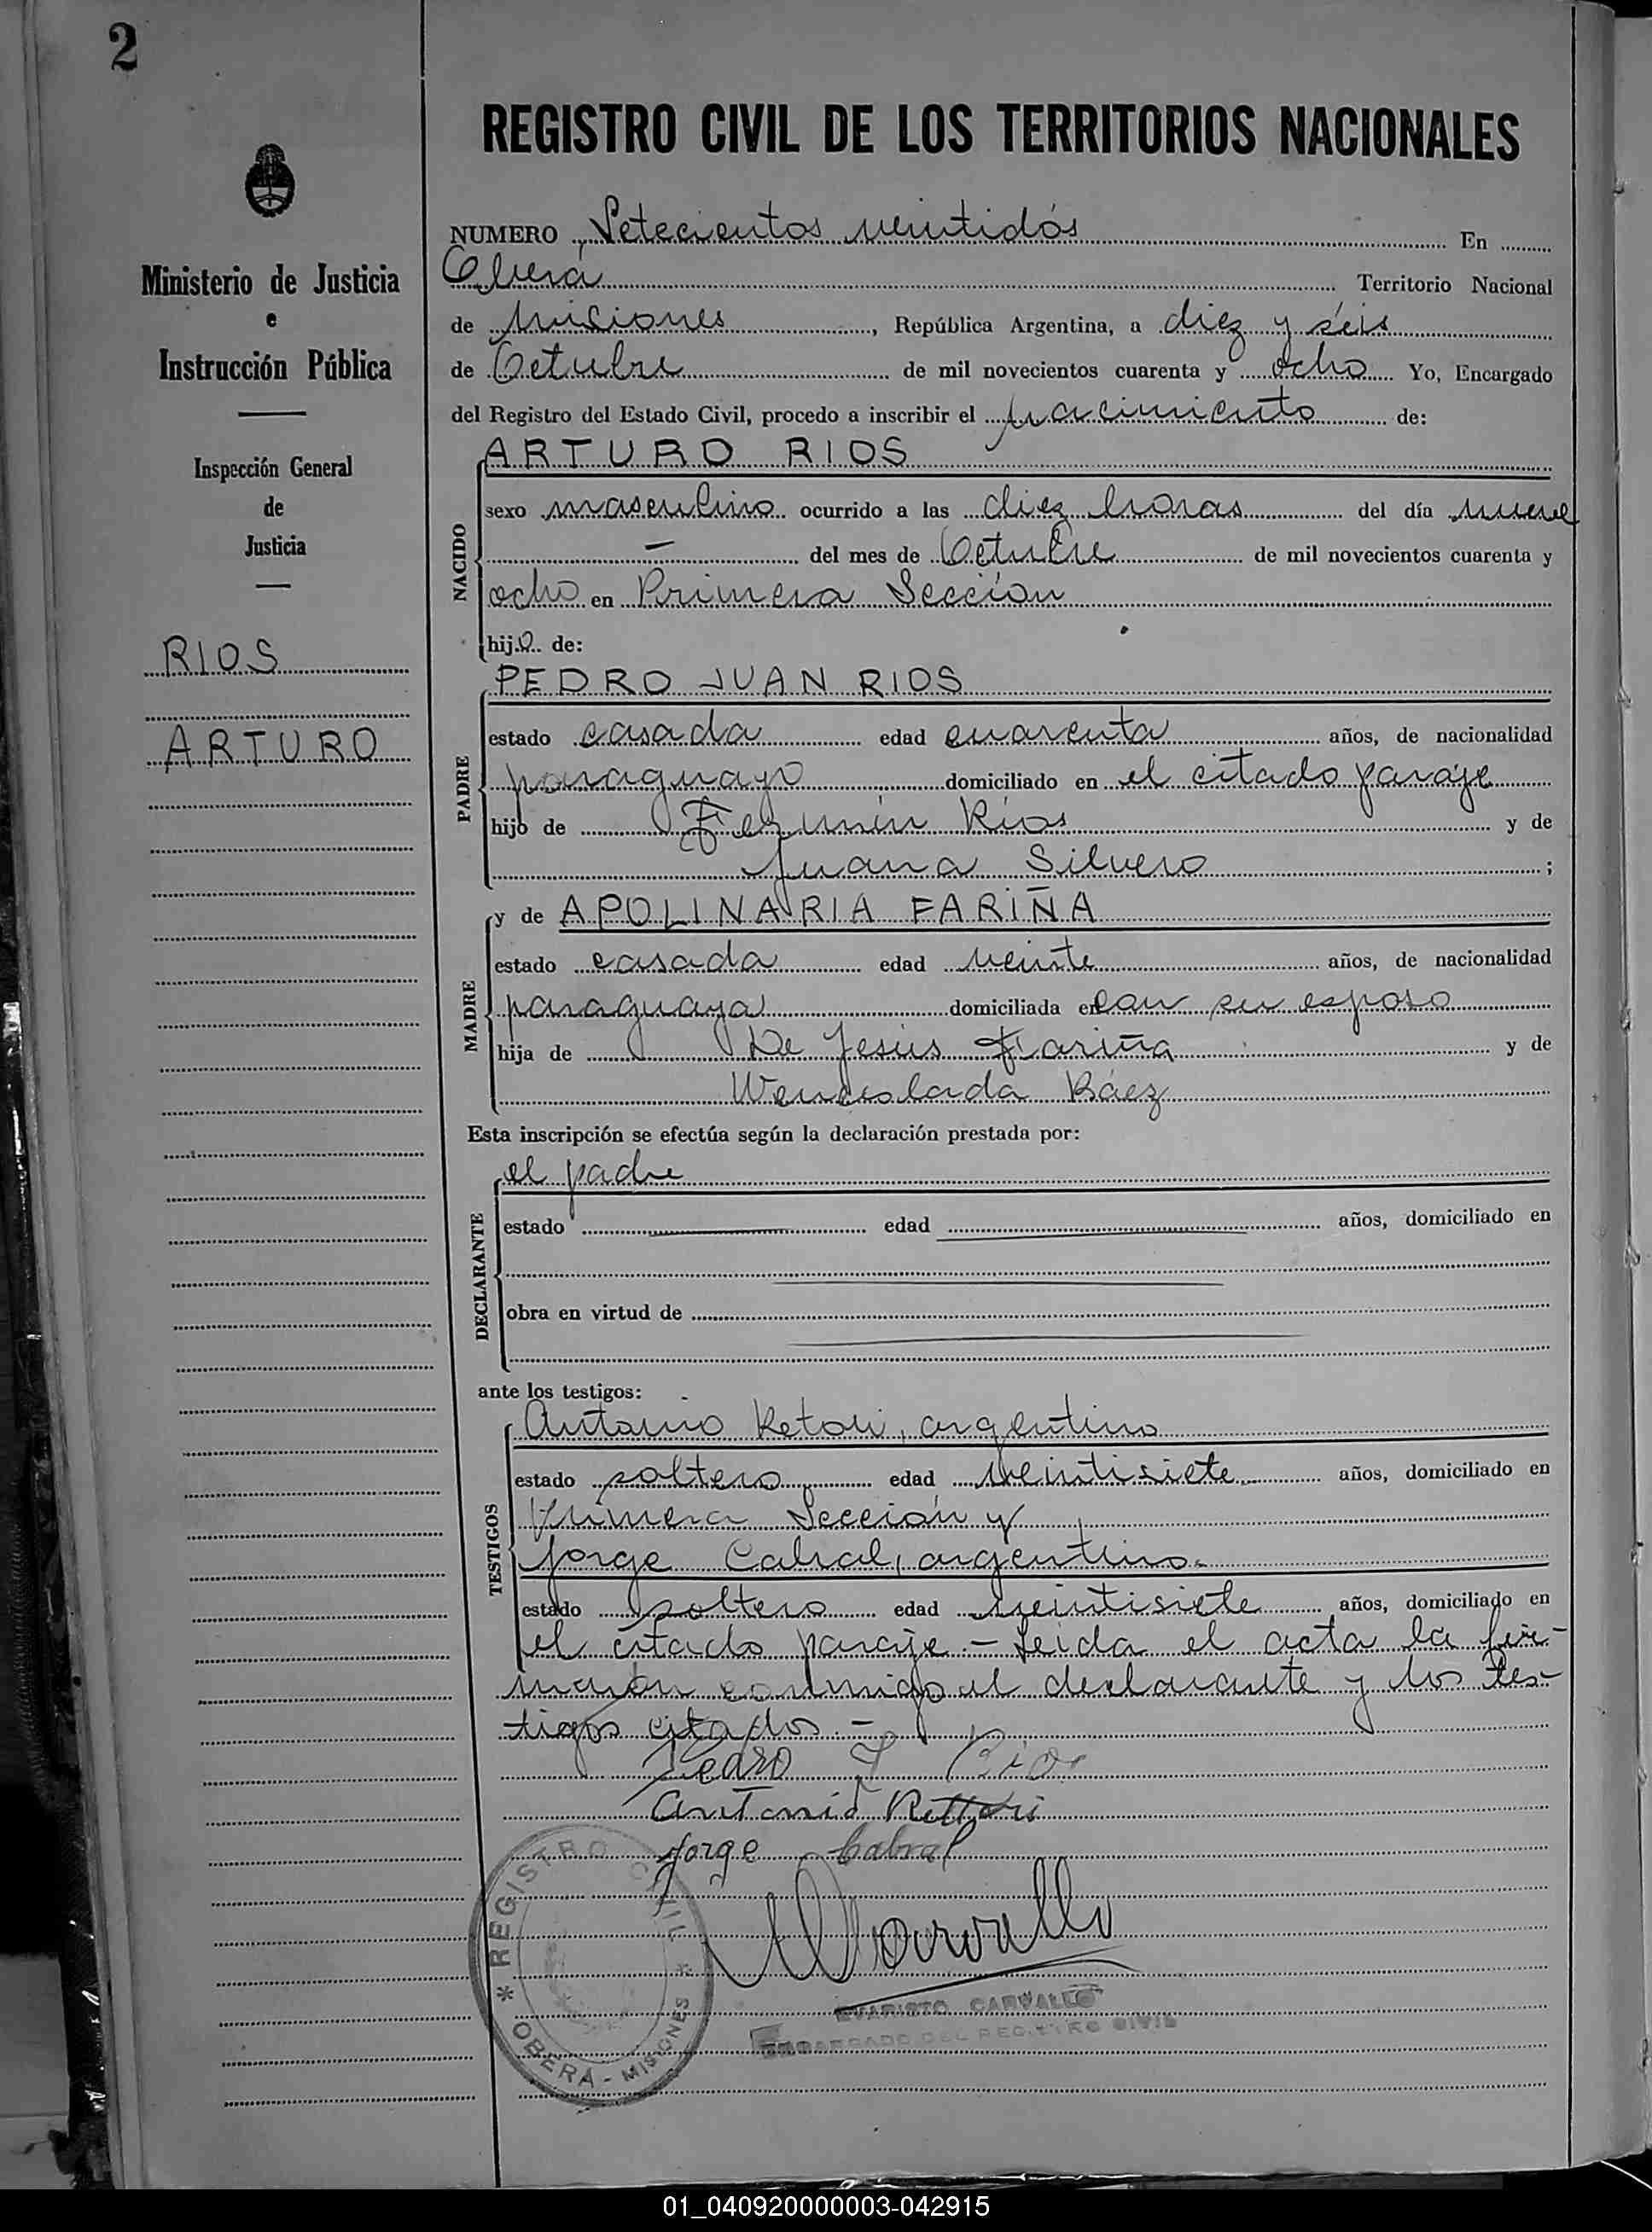 2
REGISTRO CIVIL DE LOS TERRITORIOS NACIONALES
Ministerio de Justicia
e
Instrucción Pública
Inspección General
de
Justicia
RIOS
ARTURO
NUMERO Setecientos veintidós En
Oberá Territorio Nacional
de Misiones, República Argentina, a diez y séis
de Octubre de mil novecientos cuarenta y ocho Yo, Encargado
del Registro del Estado Civil, procedo a inscribir el nacimiento de:
ARTURO RIOS
NACIDO
sexo masculino ocurrido a las diez horas del día nueve
— del mes de Octubre de mil novecientos cuarenta y
ocho en Primera Sección
hijo de:
PEDRO JUAN RIOS
PADRE
estado casado edad cuarenta años, de nacionalidad
paraguayo domiciliado en el citado paraje
hijo de Fermín Ríos y de
Juana Silvero;
y de APOLINARIA FARIÑA
MADRE
estado casada edad veinte años, de nacionalidad
paraguaya domiciliada en con su esposo
hija de De Jesús Fariña y de
Wenceslada Báez
Esta inscripción se efectúa según la declaración prestada por:
el padre
DECLARANTE
estado edad años, domiciliado en
obra en virtud de
ante los testigos:
Antonio Retori, argentino
TESTIGOS
estado soltero edad veintisiete años, domiciliado en
Primera Sección y
Jorge Cabral, argentino.
estado soltero edad veintisiete años, domiciliado en
el citado paraje.- Leida el acta la fir-
marón conmigo el declarante y los tes-
tigos citados.-
Pedro J Rios
Antonio Rettori
Jorge Cabral
Carvallo
* REGISTRO CIVIL *
OBERÁ - MISIONES
EVARISTO CARVALLO
ENCARGADO DEL REGISTRO CIVIL
01_040920000003-042915